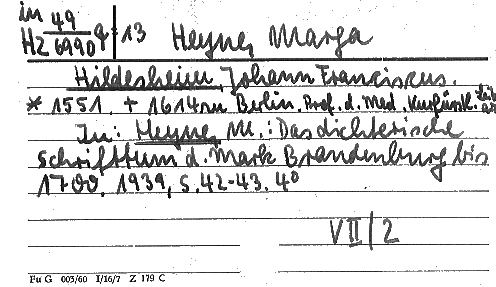 in 49
Hz 6990 q: 13 Heyne, Marga
Hildesheim, Johann Franciscus.
* 1551. + 1614 zu Berlin. Prof. d. Med. Kurfürstl.
In: Heyne, M.: Das dichterische
Schrifttum d. Mark Brandenburg bis
1700. 1939, S. 42-43. 4°
VII/2
Fu G 003/60 I/16/7 Z 179 C